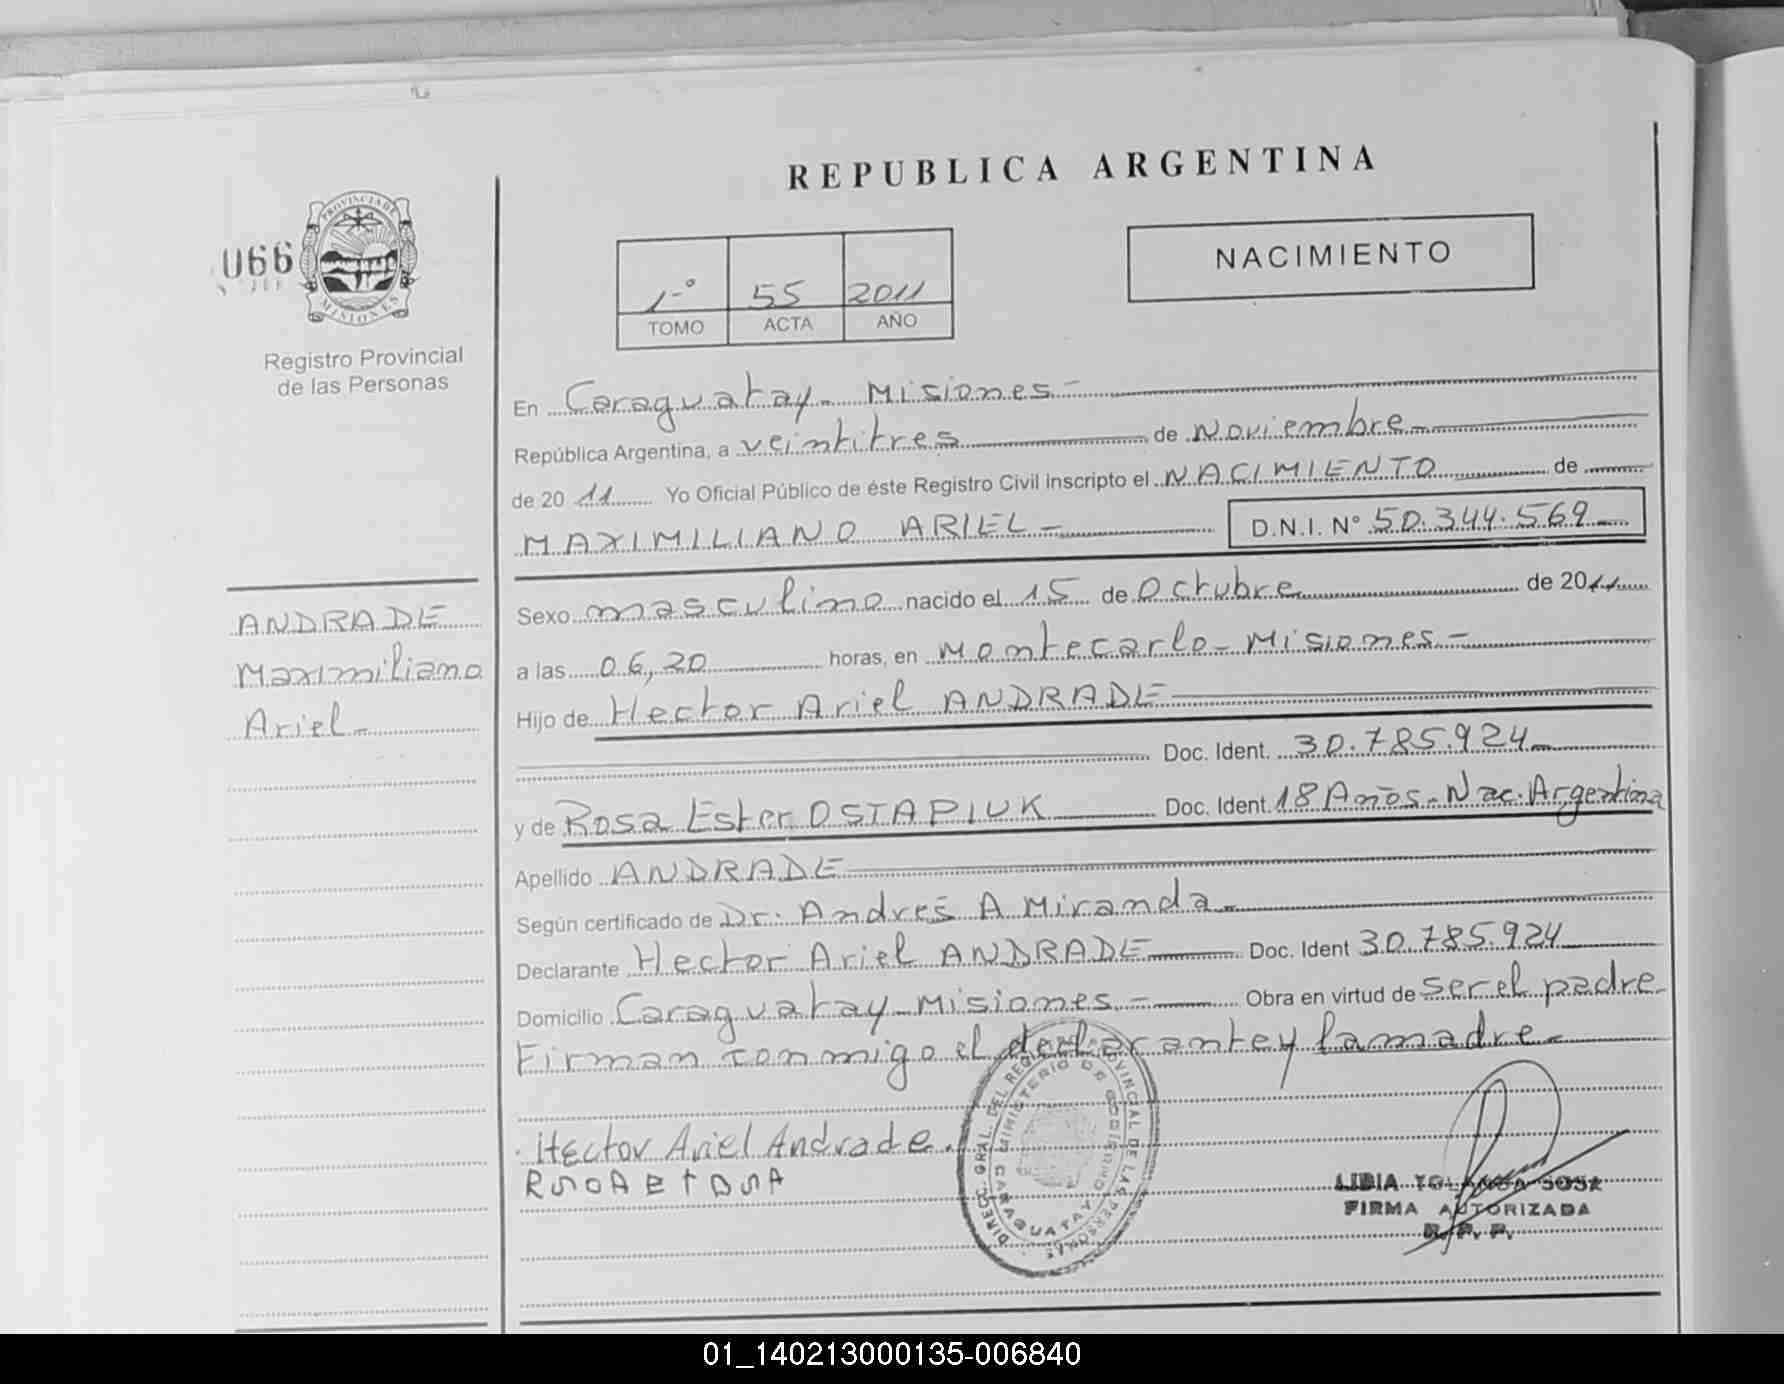 REPUBLICA ARGENTINA
066
PROVINCIA DE
MISIONES
Registro Provincial
de las Personas
1-º 55 2011
TOMO ACTA AÑO
NACIMIENTO
En Caraguatay - Misiones -
República Argentina, a veintitres de Noviembre -
de 20 11 Yo Oficial Público de éste Registro Civil inscripto el NACIMIENTO de
MAXIMILIANO ARIEL - D.N.I. Nº 50.344.569 -
ANDRADE
Maximiliano
Ariel -
Sexo masculino nacido el 15 de Octubre de 2011
a las 06,20 horas, en Montecarlo - Misiones -
Hijo de Hector Ariel ANDRADE
Doc. Ident. 30.785.924 -
y de Rosa Ester OSTAPIUK Doc. Ident. 18 Años - Nac. Argentina
Apellido ANDRADE
Según certificado de Dr. Andres A Miranda -
Declarante Hector Ariel ANDRADE Doc. Ident 30.785.924
Domicilio Caraguatay - Misiones - Obra en virtud de ser el padre -
Firman conmigo el declarante y la madre -
Hector Ariel Andrade.
DIREC. GRAL. DEL REG. PROVINCIAL DE LAS PERSONAS
MINISTERIO DE GOBIERNO
CARAGUATAY
LIDIA SOSA
FIRMA AUTORIZADA
R. P. P.
01_140213000135-006840